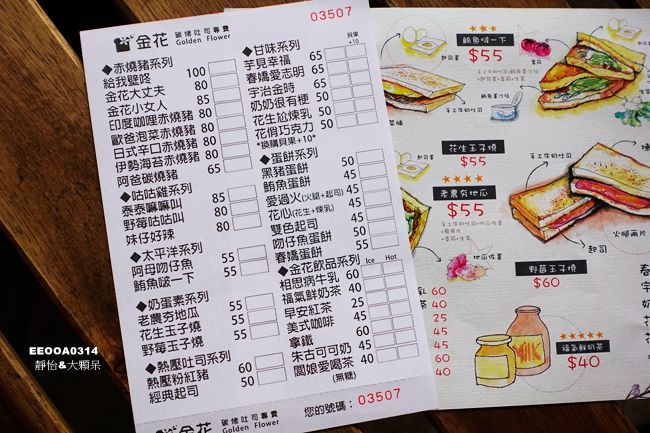 03507
金花 碳烤吐司專賣
Golden Flower
◆赤燒豬系列
給我壁咚 100
金花大丈夫 80
金花小女人 85
印度咖哩赤燒豬 80
歐爸泡菜赤燒豬 80
日式辛口赤燒豬 80
伊勢海苔赤燒豬 80
阿爸碳燒豬 65
◆咕咕雞系列
泰泰嘛嘛叫 85
野莓咕咕叫 80
妹仔好辣 80
◆太平洋系列
阿母吻仔魚 55
鮪魚啵一下 55
◆奶蛋素系列
老農夯地瓜 55
花生玉子燒 55
野莓玉子燒 55
◆熱壓吐司系列
熱壓粉紅豬 60
經典起司 50
◆甘味系列
貝果
+10
芋見幸福 65
春嬌愛志明 65
宇治金時 65
奶奶很有梗 50
花生尬煉乳 50
花俏巧克力 50
*換購貝果+10*
◆蛋餅系列
黑豬蛋餅 50
鮪魚蛋餅 45
愛過火(火腿+起司) 45
花心(花生+煉乳) 45
雙色起司 45
吻仔魚蛋餅 50
春嬌蛋餅 45
◆金花飲品系列
Ice Hot
相思病牛乳 60
福氣鮮奶茶 40
早安紅茶 25
美式咖啡 45
拿鐵 60
朱古可可奶 45
闆娘愛喝茶 40
(無糖)
金花 碳烤吐司專賣
Golden Flower
您的號碼: 03507
EEOOA0314
靜怡&大顆呆
鮪魚啵一下
$55
花生玉子燒
$55
★★★★
老農夯地瓜
$55
手工牛奶吐司
火腿兩片
起司
野莓玉子燒
$60
MILK
★★★★★
福氣鮮奶茶
$40